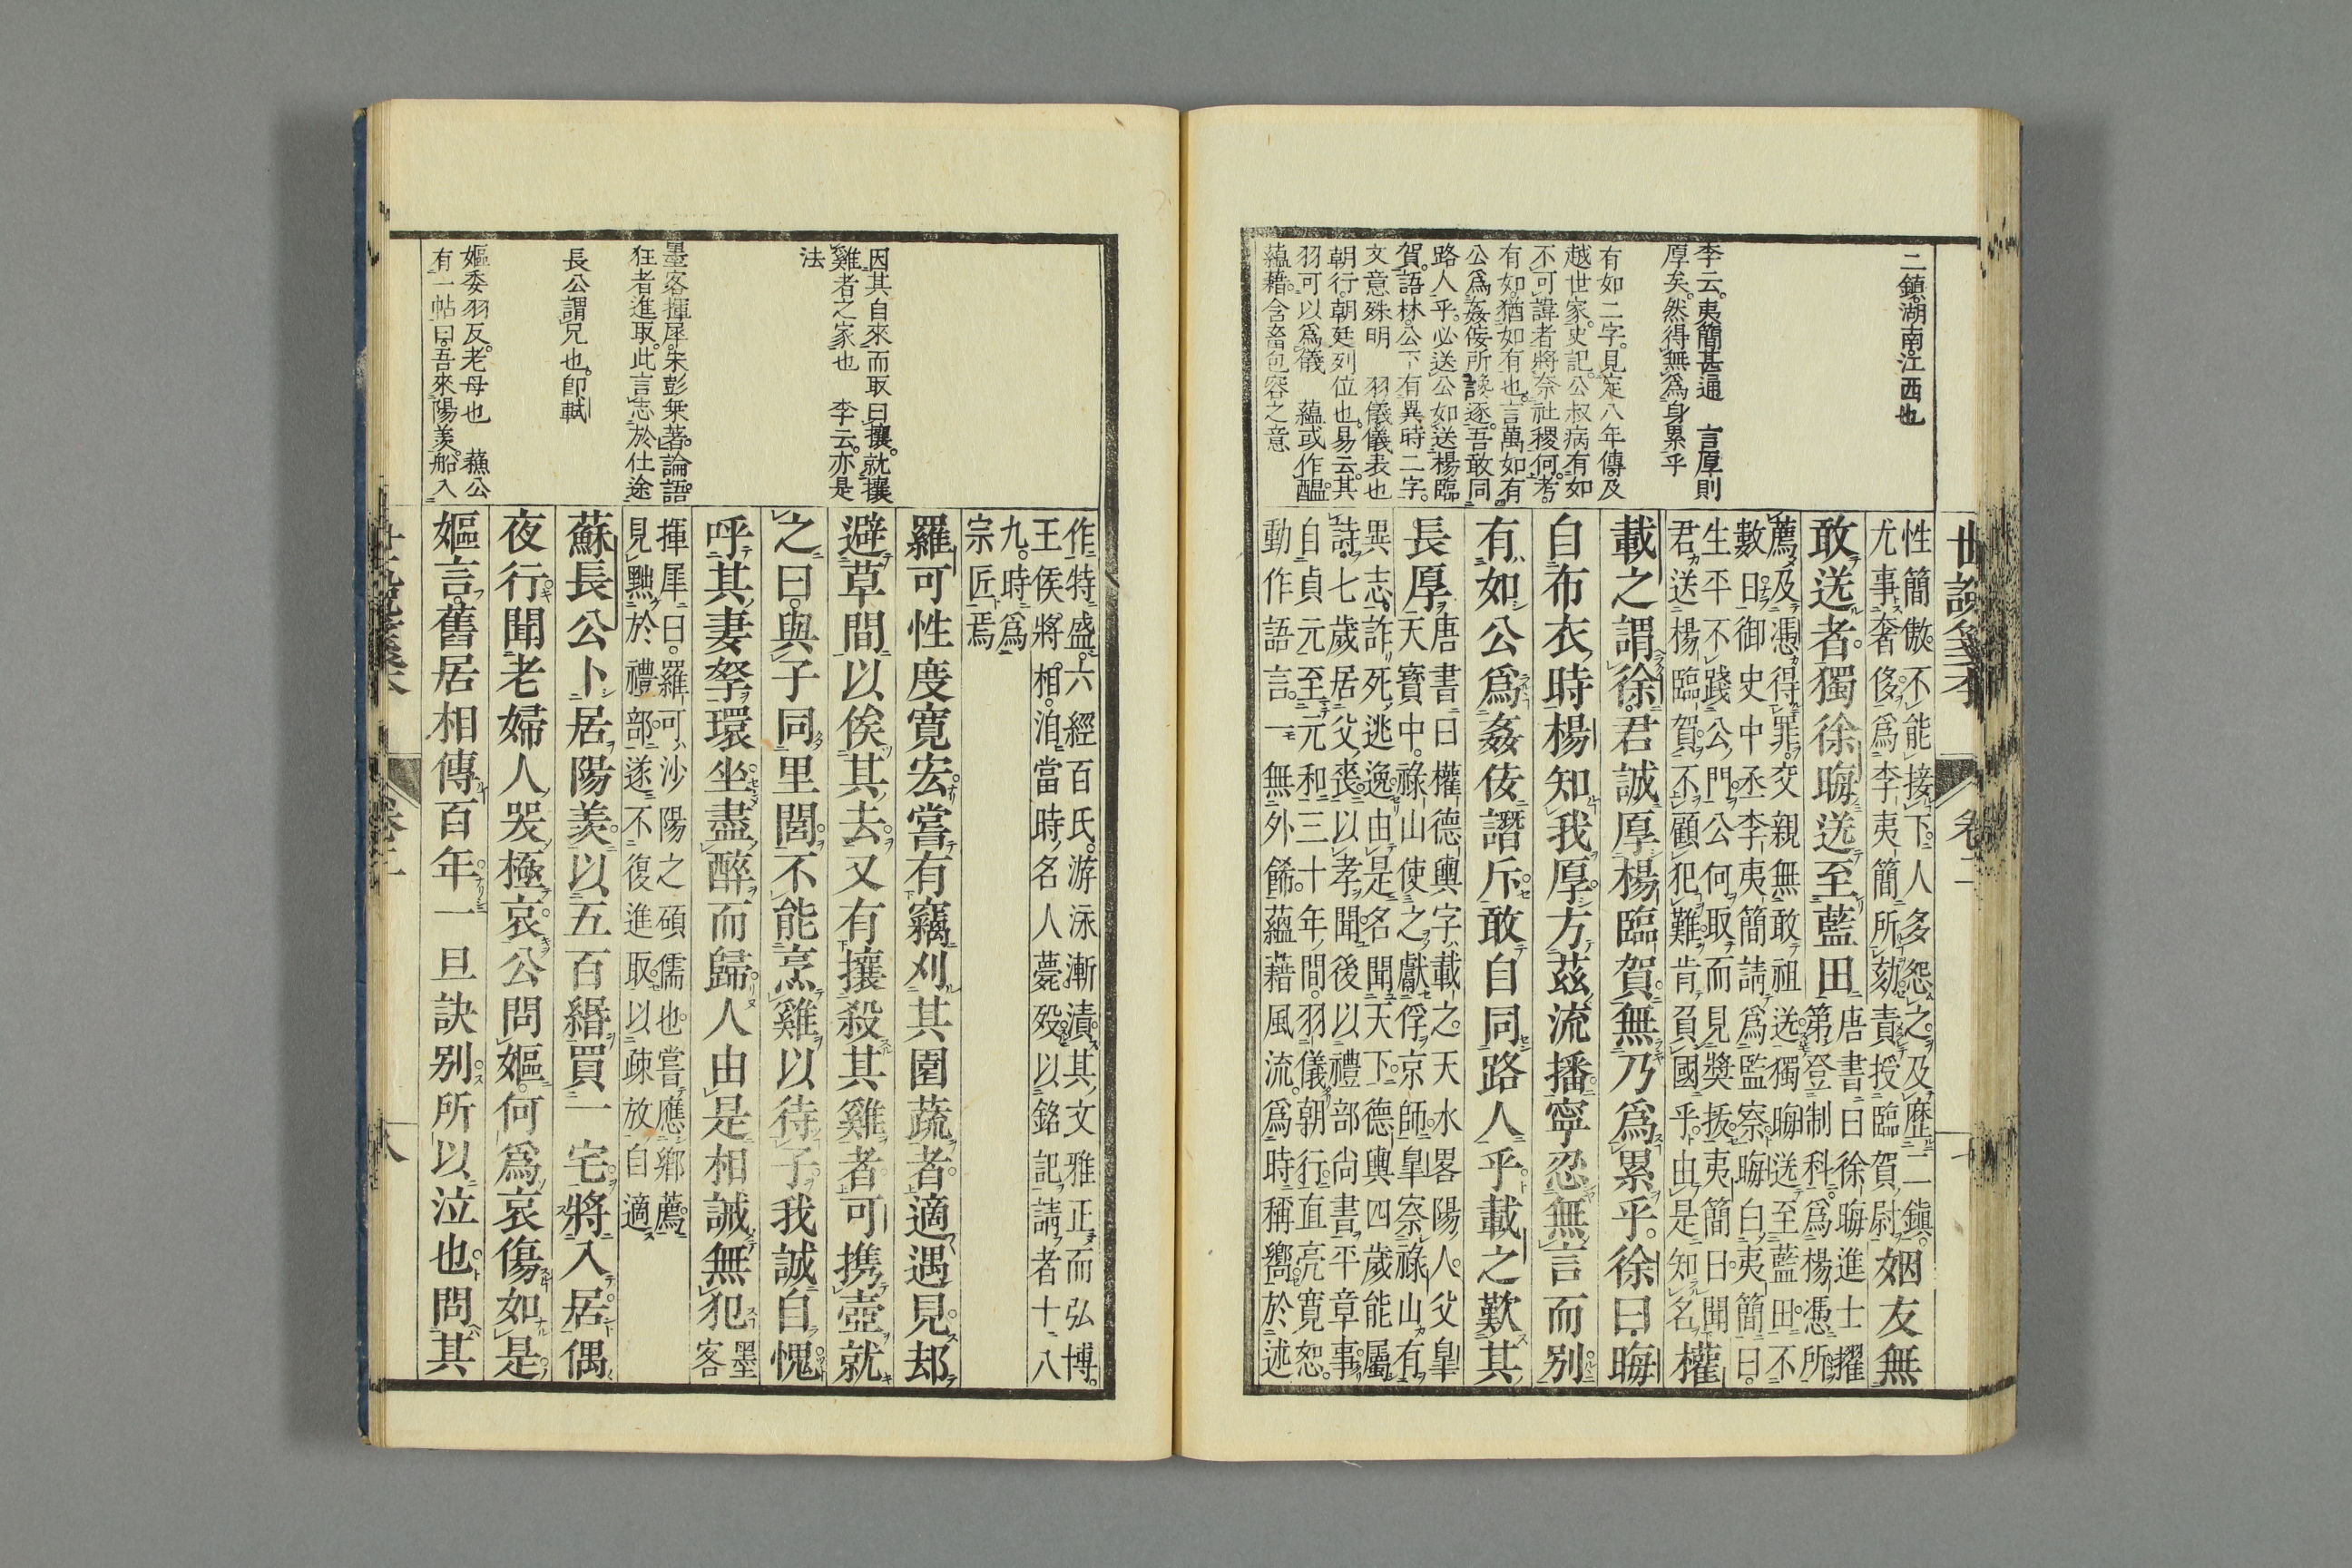 二鎮湖南江西也
李云夷簡甚通　言厚則
厚矣然得無為身累乎
有如二字見定八年傳及
越世家史記公叔病有如
不可諱者將奈社稷何考
有如猶如有也言萬如有
公為姦佞所譖逐吾敢同
路人乎必送公如送楊臨
賀語林公下有異時二字
文意殊明　羽儀儀表也
朝行朝廷列位也易云其
羽可以為儀　蘊或作醞
蘊藉含畜包容之意
性簡傲不能接下人多怨之及歷二鎮
尤事奢侈為李夷簡所劾責授臨賀尉
姻友無
敢送者獨徐晦送至藍田
唐書曰徐晦進士擢
第登制科為楊憑所
薦及憑得罪交親無敢祖送獨晦送至藍田不
數日御史中丞李夷簡請為監察晦白夷簡曰
生平不踐公門公何取而見獎拔夷簡曰聞
君送楊臨賀不顧犯難肯負國乎由是知名
權
載之謂徐君誠厚楊臨賀無乃為累乎徐曰晦
自布衣時楊知我厚方茲流播寧忍無言而別
有如公為姦佞譖斥敢自同路人乎載之歎其
長厚
唐書曰權德輿字載之天水畧陽人父皐
天寶中祿山使之獻俘京師皐察祿山有
異志詐死逃逸由是名聞天下德輿四歲能屬
詩七歲居父喪以孝聞後以禮部尚書平章事
自貞元至元和三十年間羽儀朝行直亮寬恕
動作語言一無外餙蘊藉風流為時稱嚮於述
世說箋本　卷二
因其自來而取曰攘就攘
雞者之家也　李云亦是
法
墨客揮犀朱彭乗著論語
狂者進取此言志於仕途
長公謂兄也卽軾
嫗委羽反老母也　蘇公
有一帖曰吾來陽羨船入
作特盛六經百氏游泳漸漬其文雅正而弘博
王侯將相洎當時名人薨歿以銘記請者十八
九時為
宗匠焉
羅可性度寬宏嘗有竊刈其園蔬者適遇見却
避草間以俟其去又有攘殺其雞者可携壺就
之曰與子同里閭不能烹雞以待子我誠自愧
呼其妻孥環坐盡醉而歸人由是相誡無犯
墨客
揮犀曰羅可沙陽之碩儒也嘗應鄉薦
見黜於禮部遂不復進取以疎放自適
蘇長公卜居陽羨以五百緡買一宅將入居偶
夜行聞老婦人哭極哀公問嫗何為哀傷如是
嫗言舊居相傳百年一旦訣別所以泣也問其